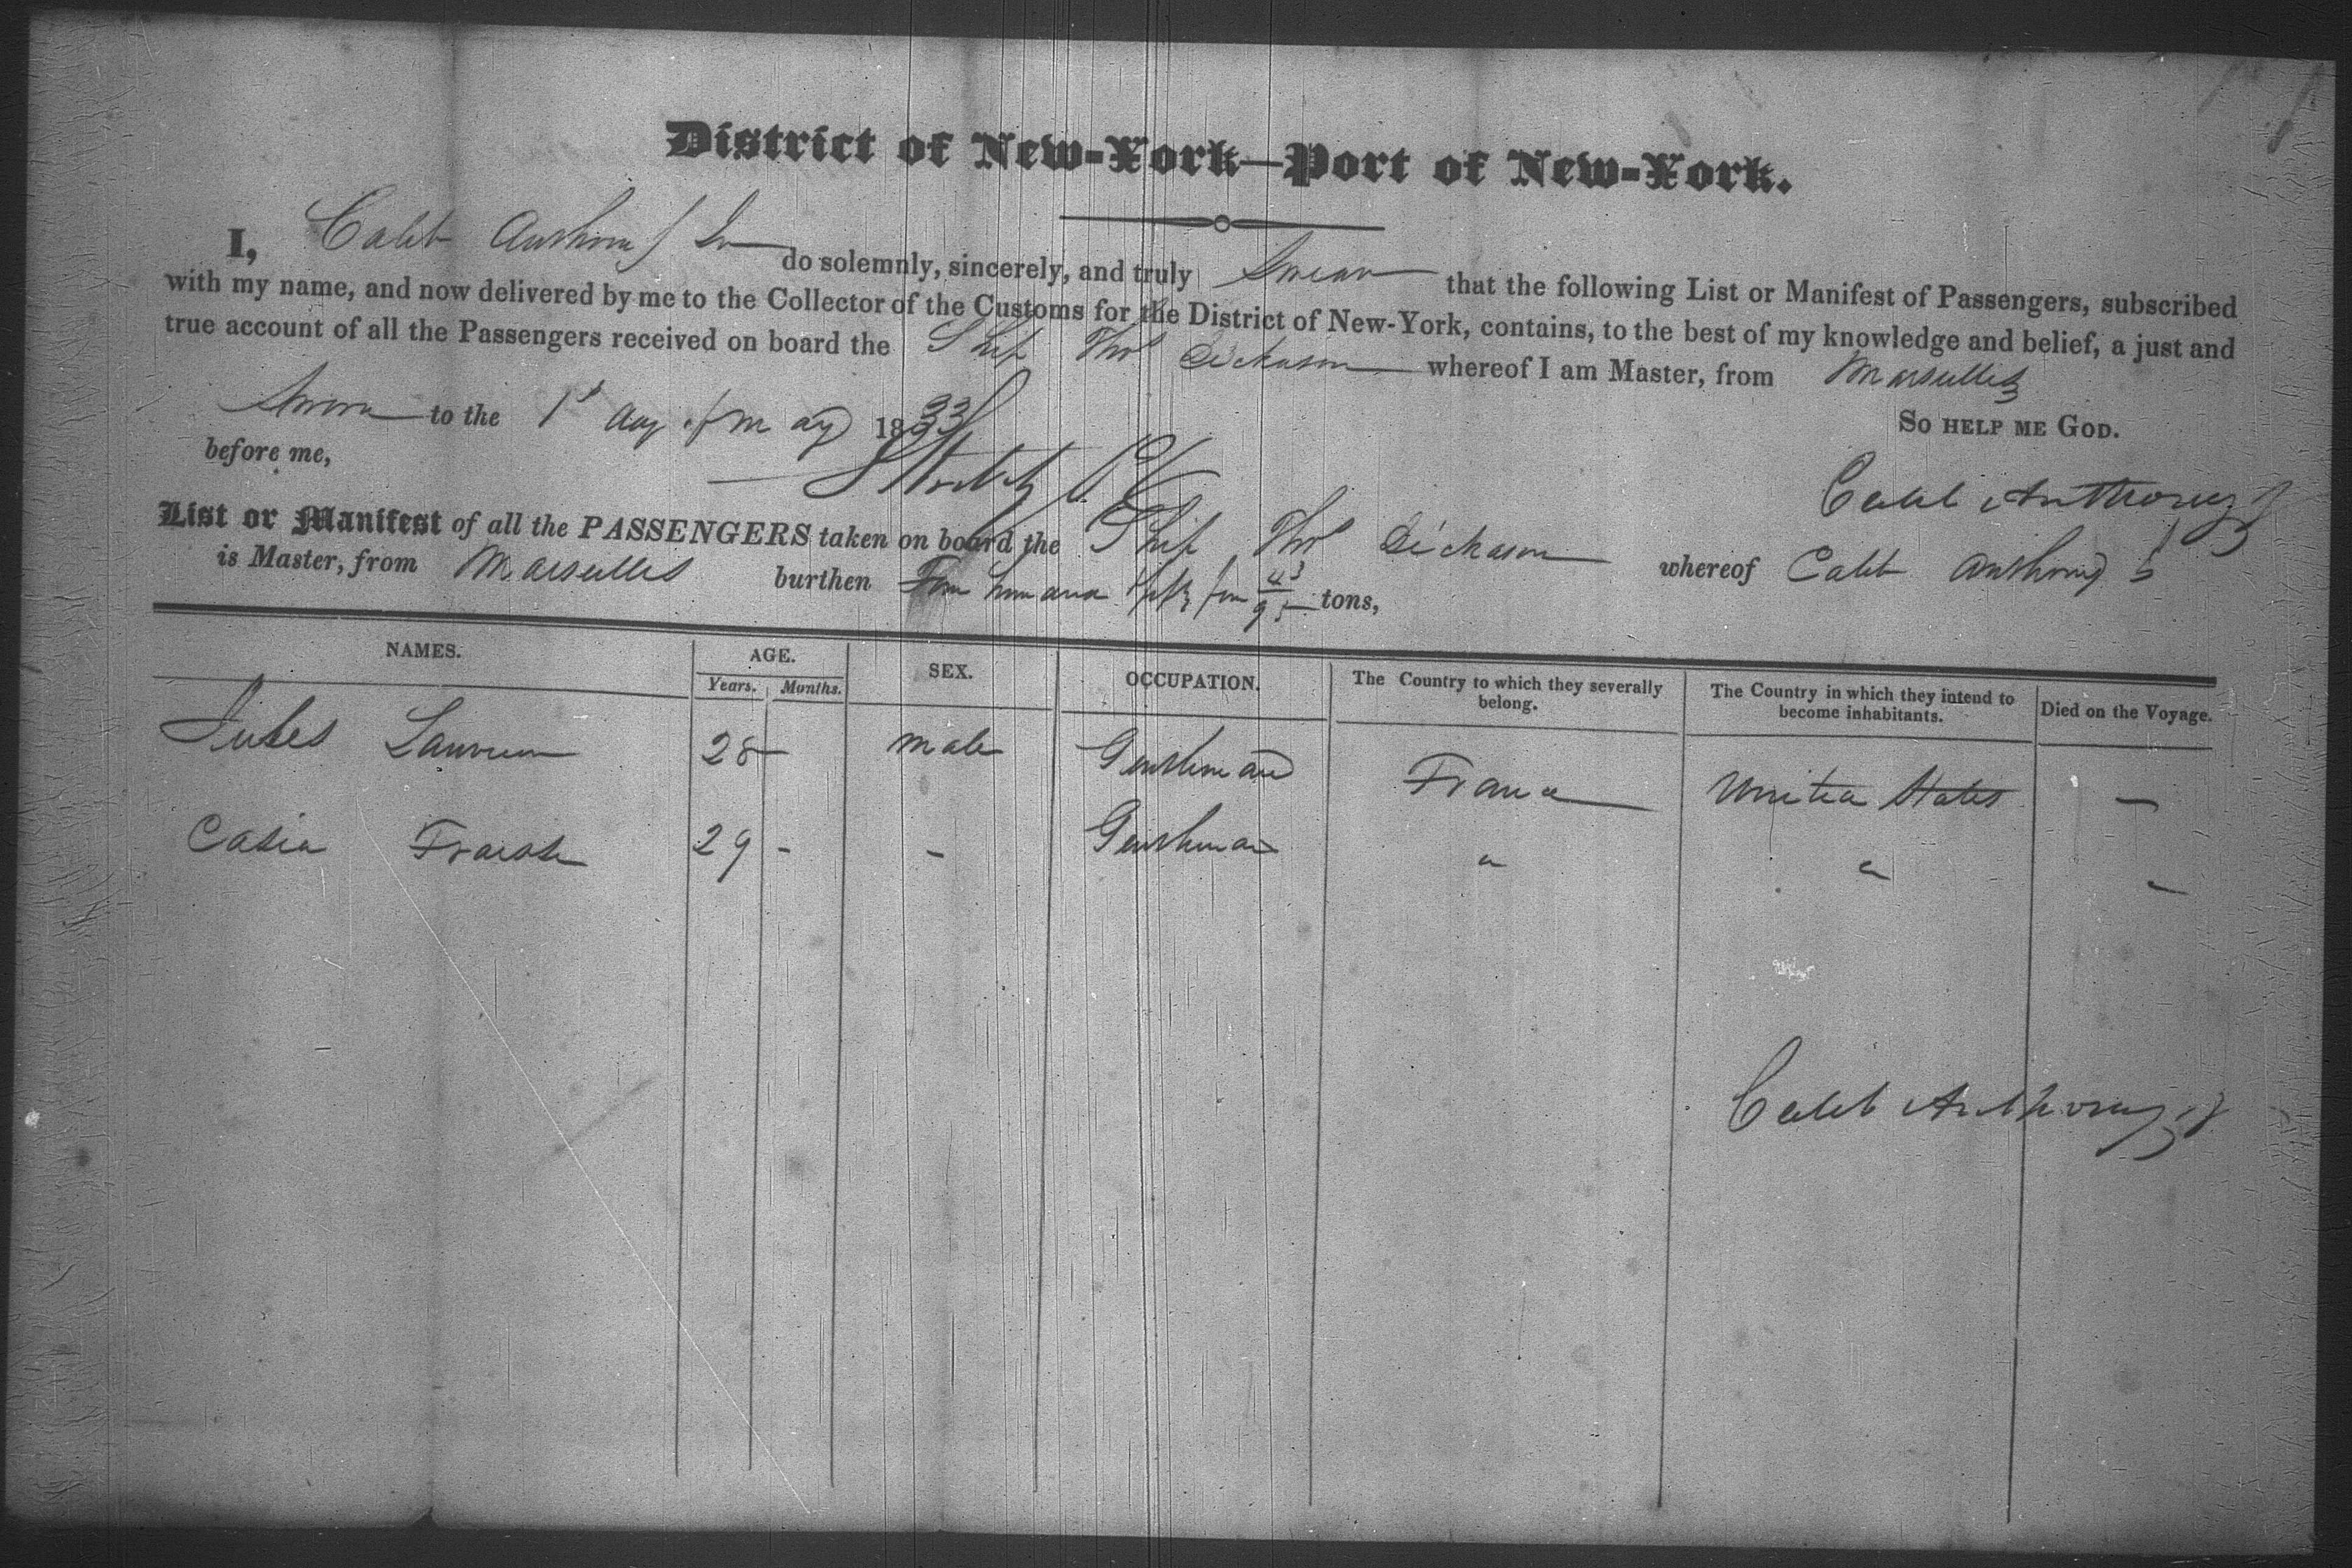 District of New-York—Port of New-York.
I, Caleb Anthony Jr do solemnly, sincerely, and truly Swear that the following List or Manifest of Passengers, subscribed
with my name, and now delivered by me to the Collector of the Customs for the District of New-York, contains, to the best of my knowledge and belief, a just and
true account of all the Passengers received on board the Ship Thos Dickason whereof I am Master, from Marseilles
Sworn to the 1st day of May 1833 So HELP ME GOD.
before me,
Caleb Anthony Jr
List or Manifest of all the PASSENGERS taken on board the Ship Thos Dickason whereof Caleb Anthony Jr
is Master, from Marseilles burthen Four hundred fifty four 43/95 tons,
NAMES. AGE. SEX. OCCUPATION. The Country to which they severally belong. The Country in which they intend to become inhabitants. Died on the Voyage.
Years. Months.
Jules 28 — male Gentleman France United States —
29 - - Gentleman " " -
Caleb Anthony Jr